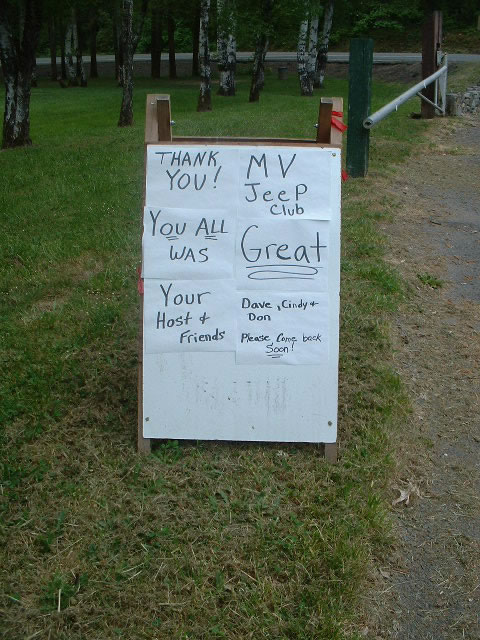 THANK
YOU!
MV
JeeP
Club
YOU ALL
WAS
Great
Your
Host &
Friends
Dave, Cindy &
Don
Please Come back
Soon!